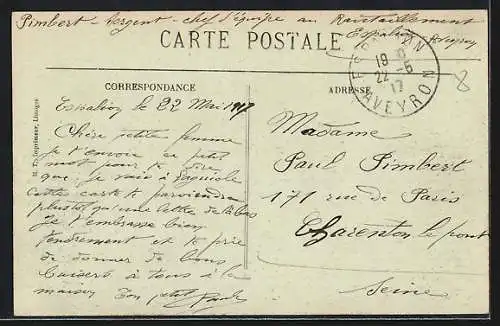 Pimbert - Sergent - chef d'équipe au Ravitaillement
Espalion Aveyron
CARTE POSTALE
ESPALION
19
22 - 5
17
AVEYRON
8
CORRESPONDANCE
ADRESSE
M. T. Imprimeur, Limoges
Espalion le 22 Mai 1917
Chère petite femme
Je t'envoie ce petit
mot pour te dire
que je vais à Laguiole
cette carte te parviendra
plustot qu'une lettre de là bas
Je t'embrasse bien
tendrement et te prie
de donner de bons
baisers à tous à la
maison Ton petit Paul
Madame
Paul Pimbert
171 rue de Paris
Charenton le pont
Seine